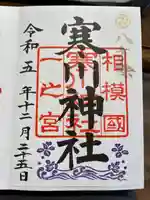 八方除
相模國
寒川神社
一之宮
令和五年十二月二十五日